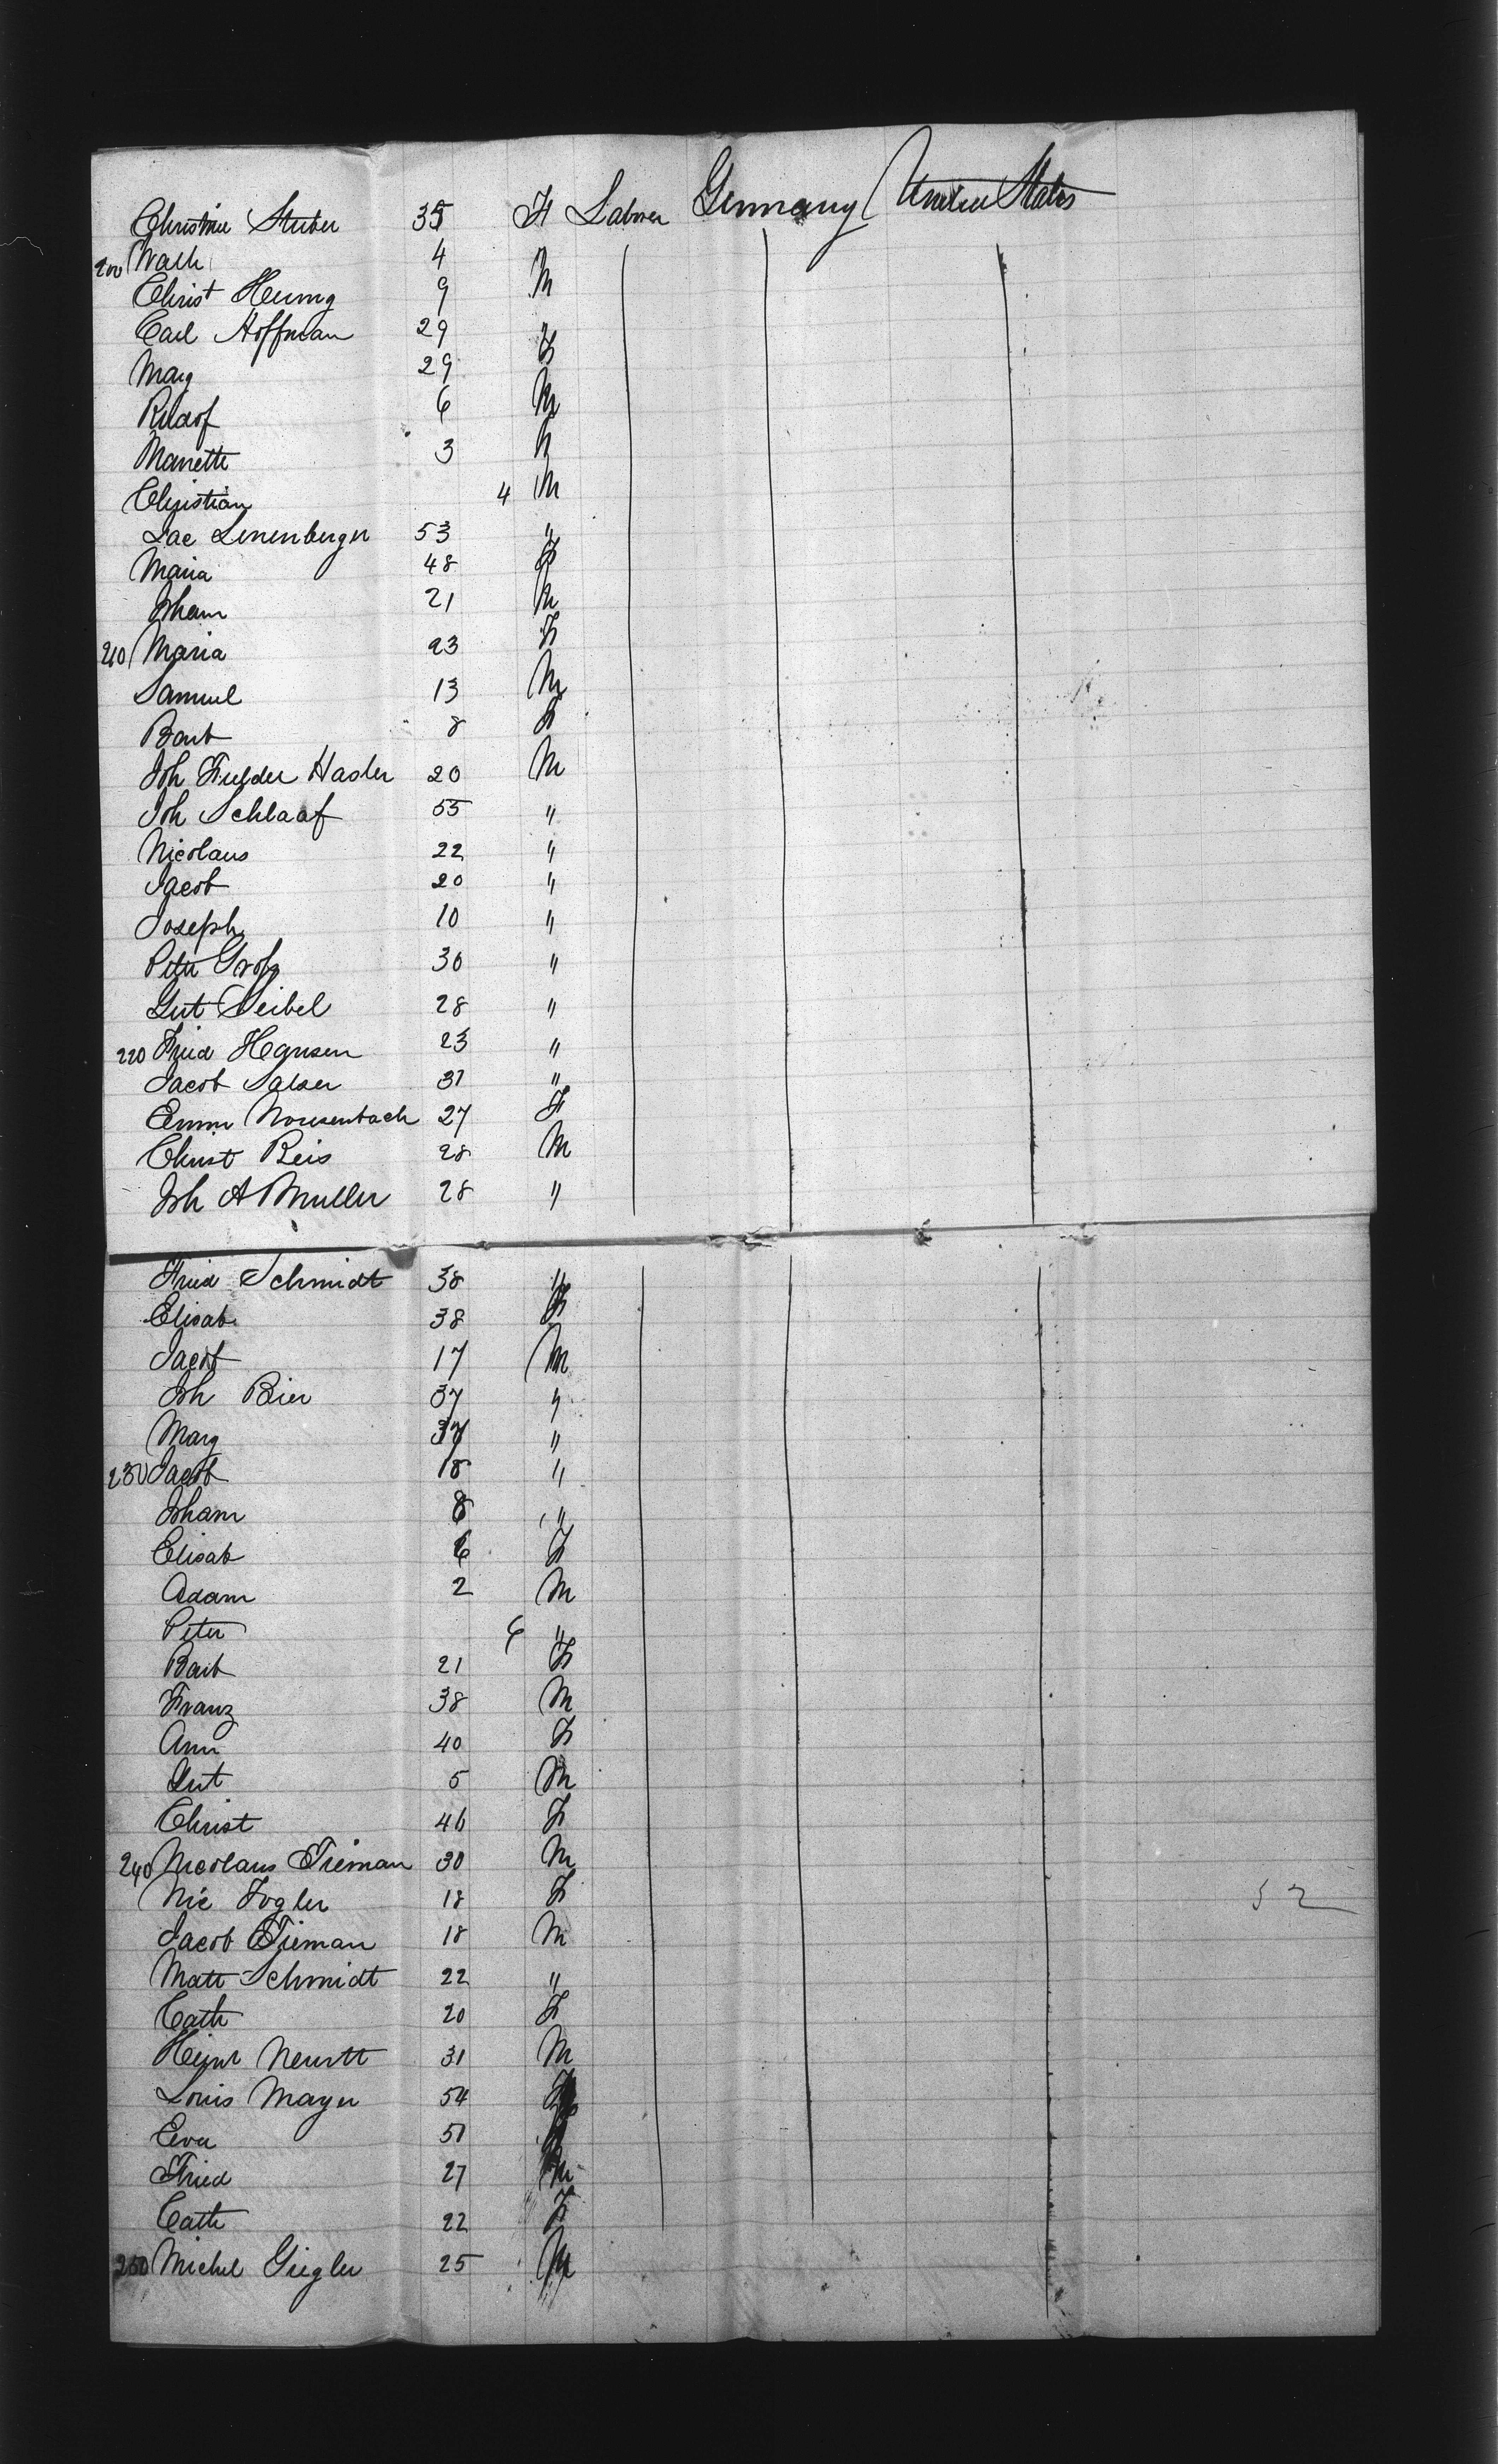 Christine Stuber 35 F Labrer Germany United States
200 Wath 4
Christ Heumg 9 M
Carl Hoffman 29
Marg 29 F
Rudof 6 M
Manette 3 F
Christian 4 M
Jac Lenenberger 53 "
Maria 48 F
Joham 21 M
210 Maria 23 F
Samuel 13 M
Barb 8 F
Joh Fielder Hasler 20 M
Joh Schlaaf 55 "
Nicolaus 22 "
Jacob 20 "
Joseph 10 "
Peter Grofs 30 "
Gut Seibel 28 "
220 Fried Hansen 23 "
Jacob Salser 31 "
Emm 27 F
Christ Reis 28 M
Joh A Muller 28 "
Fried Schmidt 38 "
Elisab 38 F
Jacob 17 M
Joh Bier 37 "
Marg 37 "
230 Jacob 18 "
Joham 8 "
Elisab 6 F
Adam 2 M
Peter 6 "
Barb 21 F
Franz 38 M
Ann 40 F
Gut 5 M
Christ 46 F
240 Nicolaus Tieman 30 M
Nic Fogler 18 F
Jacob Tieman 18 M
Matt Schmidt 22 "
Cath 20 F
Heinr Neurtt 31 M
Louis Mayer 54
Eva 51
Fried 27 M
Cath 22 F
250 Michel Giegler 25 M
52